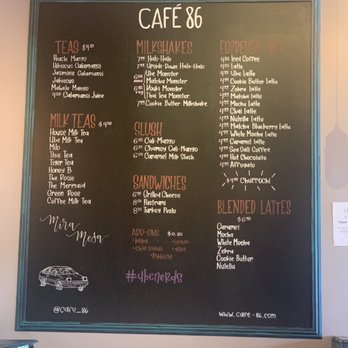 CAFÉ 86
TEAS $4.50
Peach Mango
Hibiscus Calamansi
Jasmine Calamansi
Jabiscus
Makato Mango
Calamansi Juice
MILK TEAS $4.99
House Milk Tea
Ube Milk Tea
Milo
Thai Tea
Tiger Tea
Honey B
The Rose
The Mermaid
Green Rose
Coffee Milk Tea
Mira
Mesa
@cafe_86
MILKSHAKES
Halo Halo
Upside-Down Halo-Halo
Ube Monster
Milo Monster
Vowki Monster
Thai Monster
Cookie Butter Milkshake
SLUSH
Cali-Mango
Chamoy Cali-Mango
Caramel Milk Slush
SANDWICHES
Grilled Cheese
Pastrami
Turkey Pesto
ADD-ONS $0.85
#ubenerds
ESPRESSO
Iced Coffee
Latte
Ube Latte
Cookie Butter Latte
Zebra Latte
Matcha Latte
Mocha Latte
Chai Latte
Nutella Latte
Matcha Blackberry Latte
White Mocha Latte
Caramel Latte
Sea Salt Coffee
Hot Chocolate
Affogato
Churrochi
BLENDED LATTES
Caramel
Mocha
White Mocha
Zebra
Cookie Butter
Nutella
www.cafe-86.com